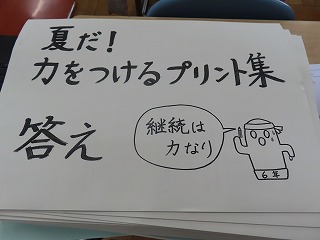 夏だ!
力をつけるプリント集
答え
継続は
力なり
6年